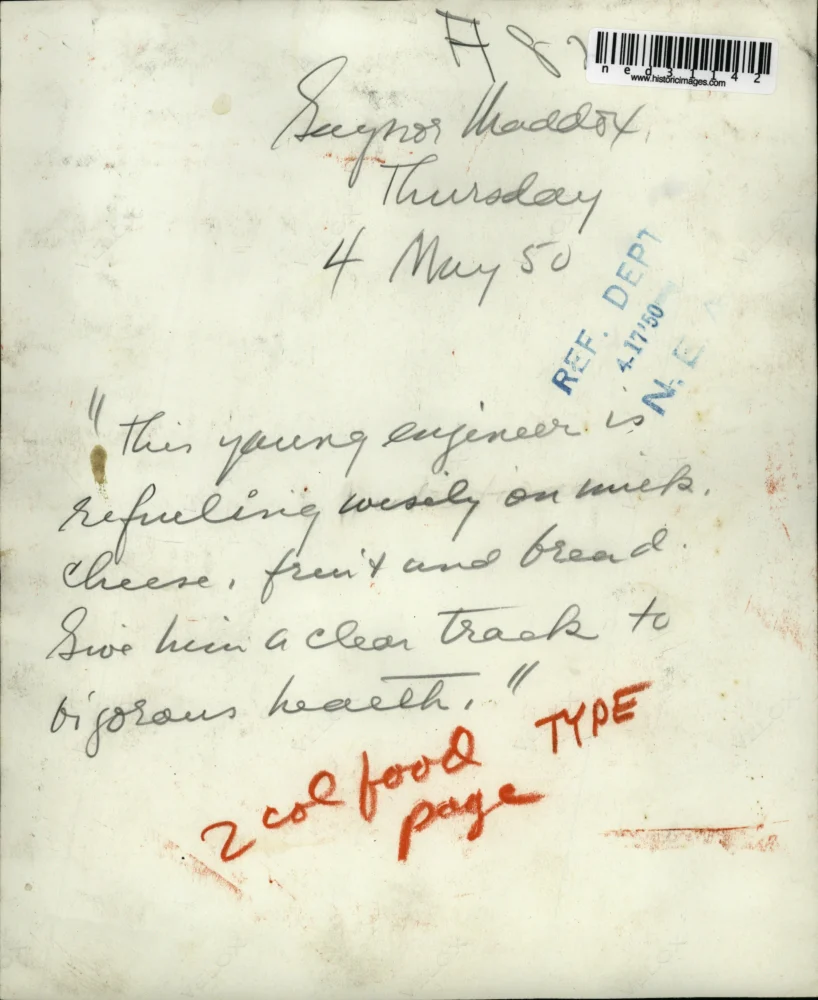 ned31142
www.historicimages.com
Gaynor Maddox
Thursday
4 May 50
REF. DEPT
4-17'50
N. E. A
"This young engineer is
refueling wisely on milk,
cheese, fruit and bread.
Give him a clear track to
vigorous health."
2 col food
page
TYPE